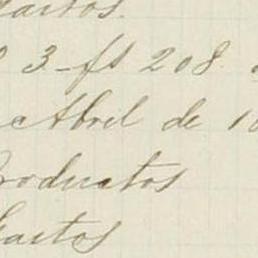 Gastos.
3. fs 208.
Abril de 1
Productos
Gastos